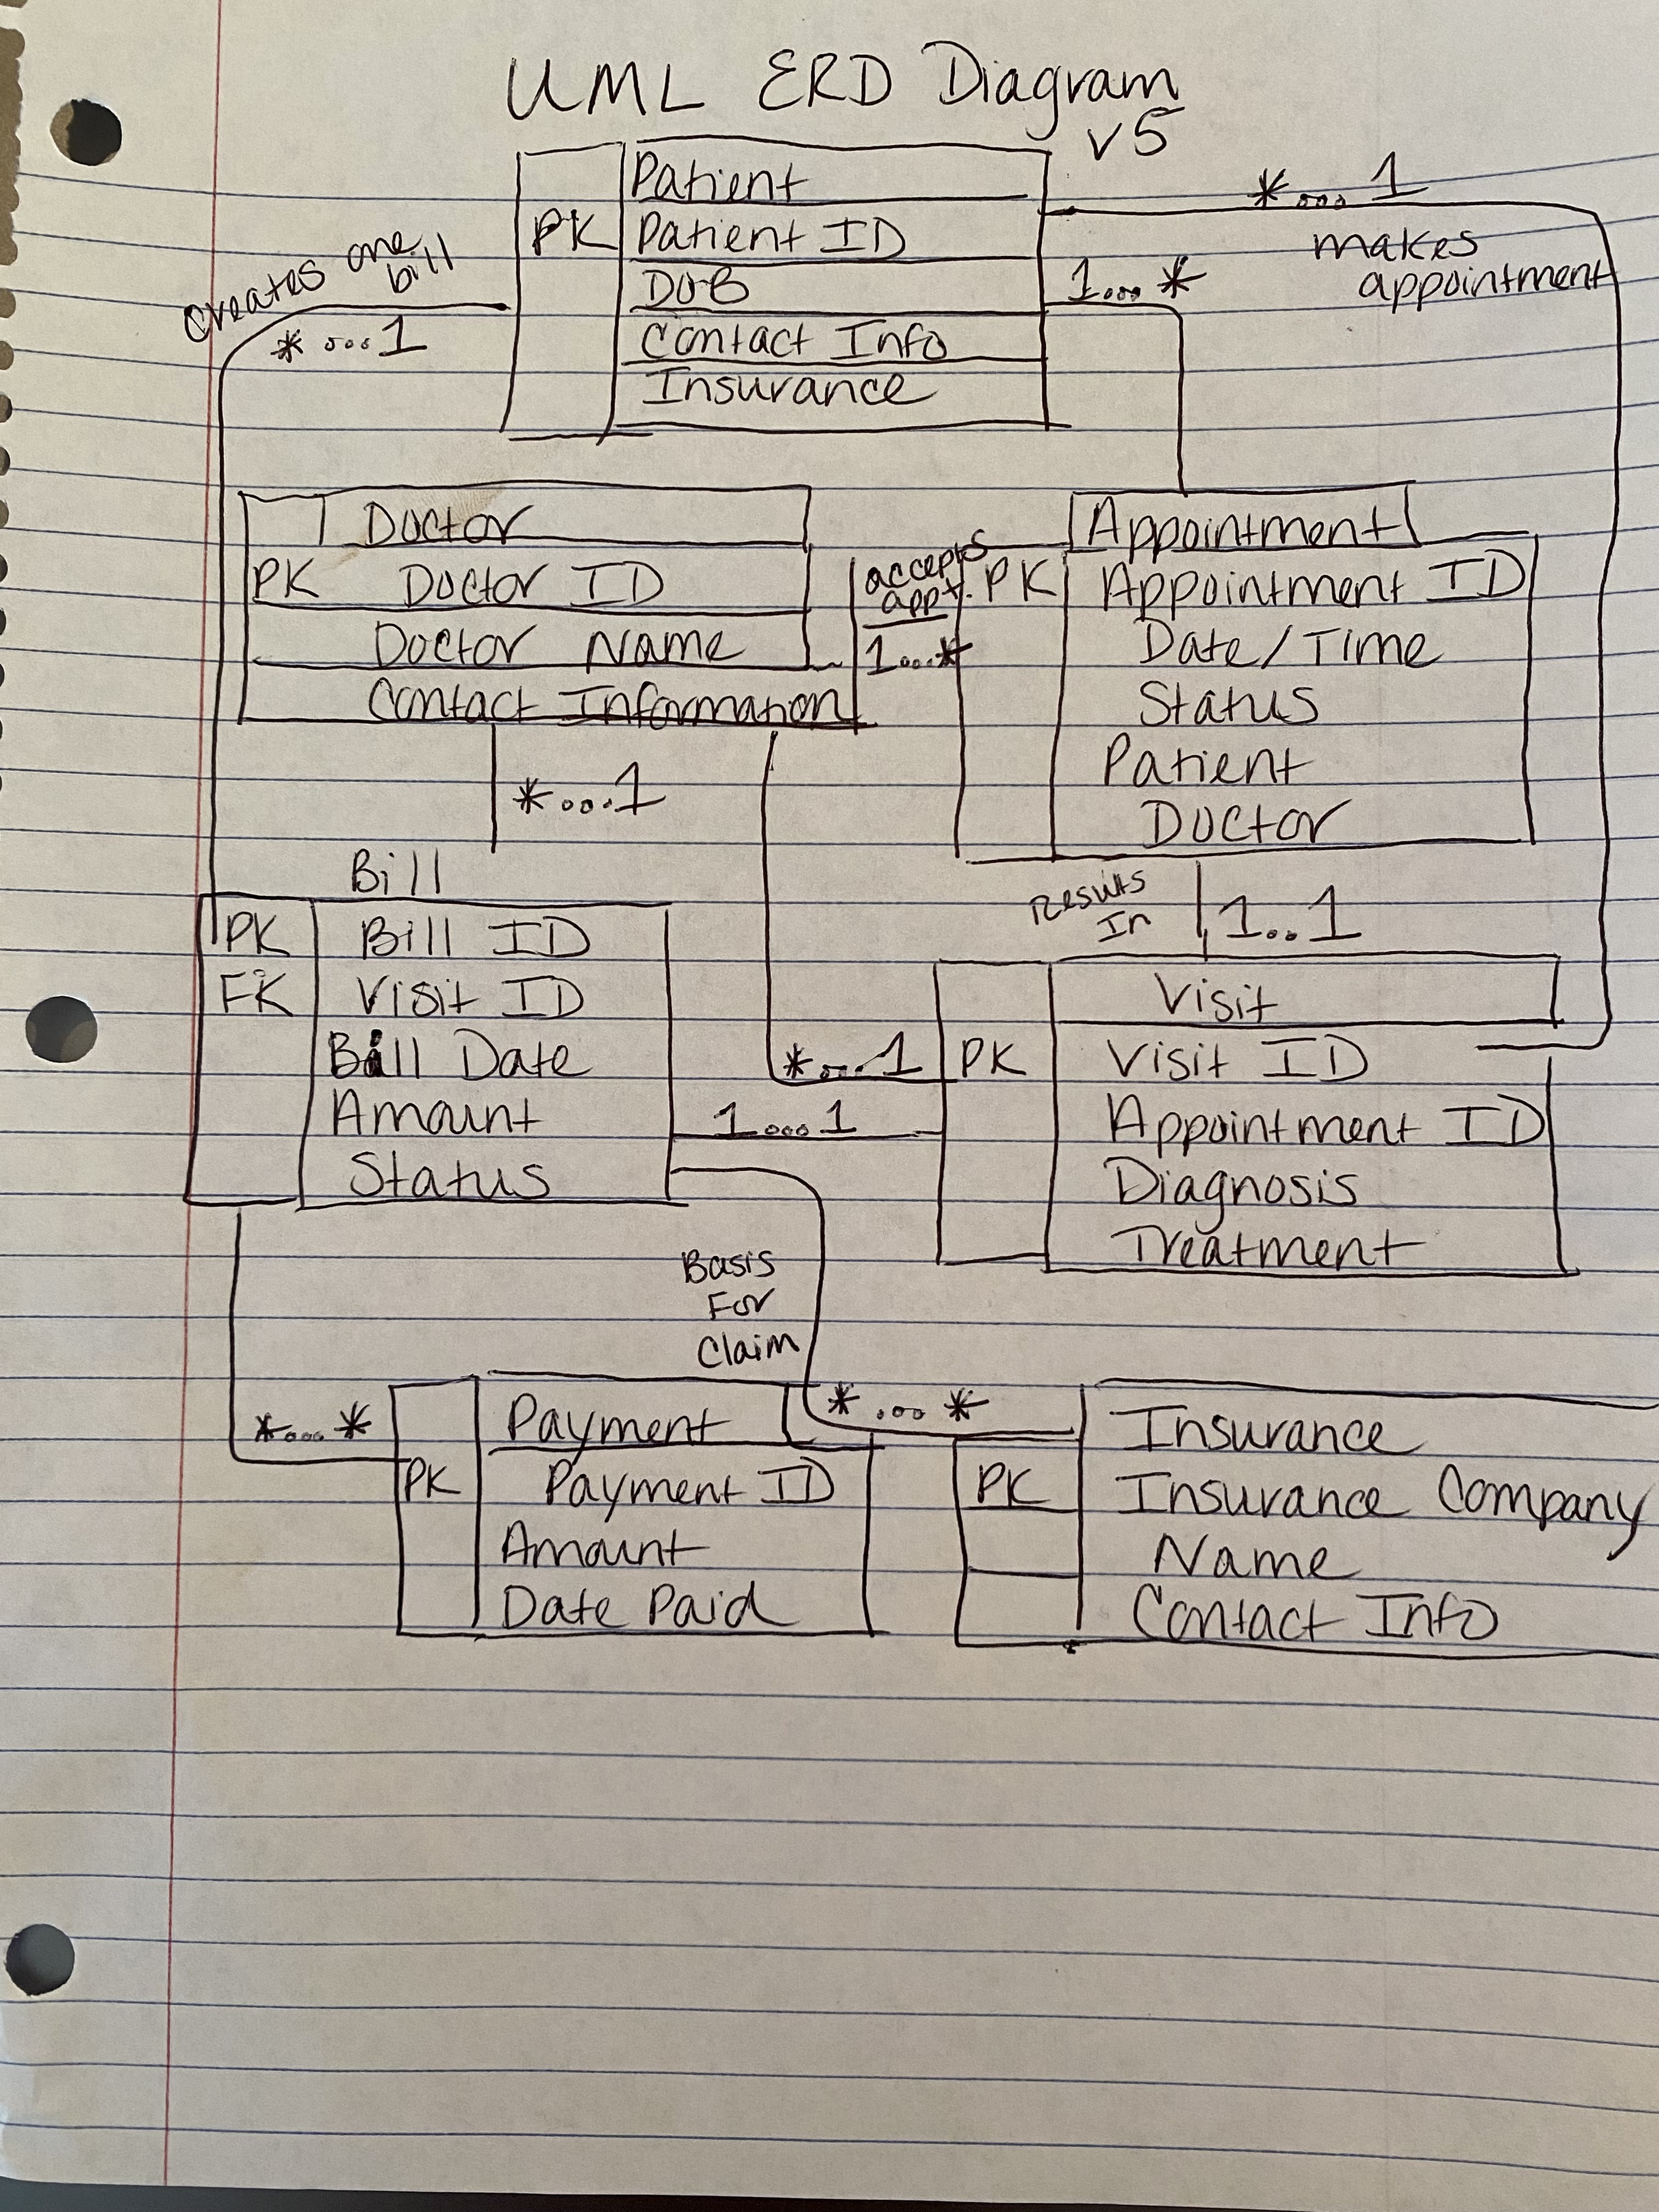 UML ERD Diagram
v5
Patient
PK Patient ID
DOB
Contact Info
Insurance
*...1
makes
appointment
1...*
Creates one
bill
*...1
Doctor
PK Doctor ID
Doctor Name
Contact Information
accepts
appt.
1...*
Appointment
PK Appointment ID
Date/Time
Status
Patient
Doctor
*...1
Results
In
1..1
Bill
PK Bill ID
FK Visit ID
Bill Date
Amount
Status
*...1
1...1
Visit
PK Visit ID
Appointment ID
Diagnosis
Treatment
Basis
For
Claim
*...*
*...*
Payment
PK Payment ID
Amount
Date Paid
Insurance
PK Insurance Company
Name
Contact Info